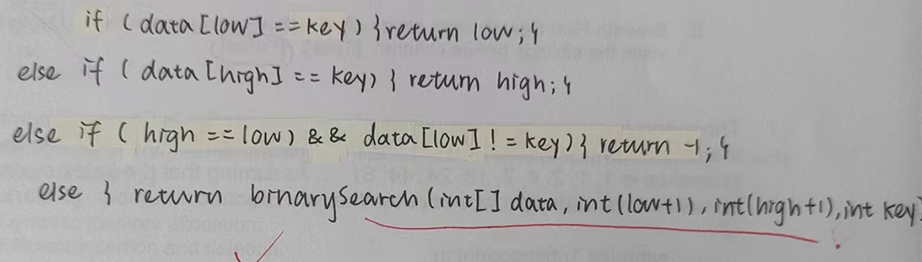 if (data[low] ==key) }return low; {
else if ( data[high] == key) } return high; {
else if ( high == low) && data[low] != key) } return -1; {
else } return binarySearch (int[] data, int (low+1), int(high+1), int key)